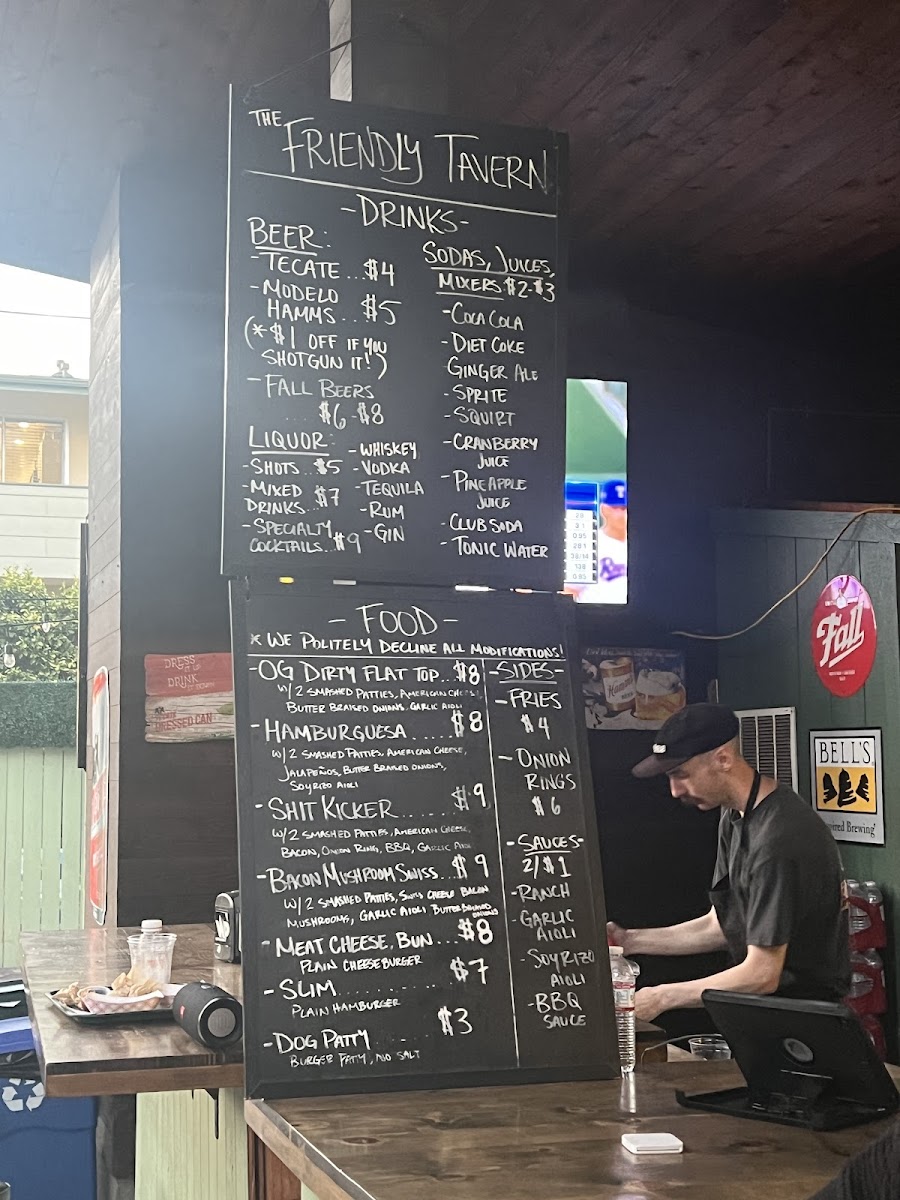 THE
FRIENDLY TAVERN
-DRINKS-
BEER:
-TECATE...$4
-MODELO
HAMMS..$5
(*$1 OFF IF YOU
SHOTGUN IT!)
-FALL BEERS
....$6-$8
LIQUOR:
-SHOTS..$5
-MIXED
DRINKS...$7
-SPECIALTY
COCKTAILS..$9
-WHISKEY
-VODKA
-TEQUILA
-RUM
-GIN
SODAS, JUICES,
MIXERS $2-$3
-COCA COLA
-DIET COKE
-GINGER ALE
-SPRITE
-SQUIRT
-CRANBERRY
JUICE
-PINEAPPLE
JUICE
-CLUB SODA
-TONIC WATER
-FOOD-
* WE POLITELY DECLINE ALL MODIFICATIONS!
-OG DIRTY FLAT TOP..$8
W/2 SMASHED PATTIES, AMERICAN CHEESE,
BUTTER BRAISED ONIONS, GARLIC AIOLI
-HAMBURGUESA.....$8
W/2 SMASHED PATTIES, AMERICAN CHEESE,
JALAPEÑOS, BUTTER BRAISED ONIONS,
SOYRIZO AIOLI
-SHIT KICKER.....$9
W/2 SMASHED PATTIES, AMERICAN CHEESE,
BACON, ONION RING, BBQ, GARLIC AIOLI
-BACON MUSHROOM SWISS..$9
W/2 SMASHED PATTIES, SWISS CHEESE BACON
MUSHROOMS, GARLIC AIOLI BUTTER BRAISED
ONIONS
-MEAT, CHEESE, BUN...$8
PLAIN CHEESEBURGER
-SLIM..........$7
PLAIN HAMBURGER
-DOG PATTY.....$3
BURGER PATTY, NO SALT
-SIDES-
-FRIES
$4
-ONION
RINGS
$6
-SAUCES-
2/$1
-RANCH
-GARLIC
AIOLI
-SOYRIZO
AIOLI
-BBQ
SAUCE
DRESS
DRINK
DRESSED CAN
Hamm's
Fall
BELL'S
Inspired Brewing'